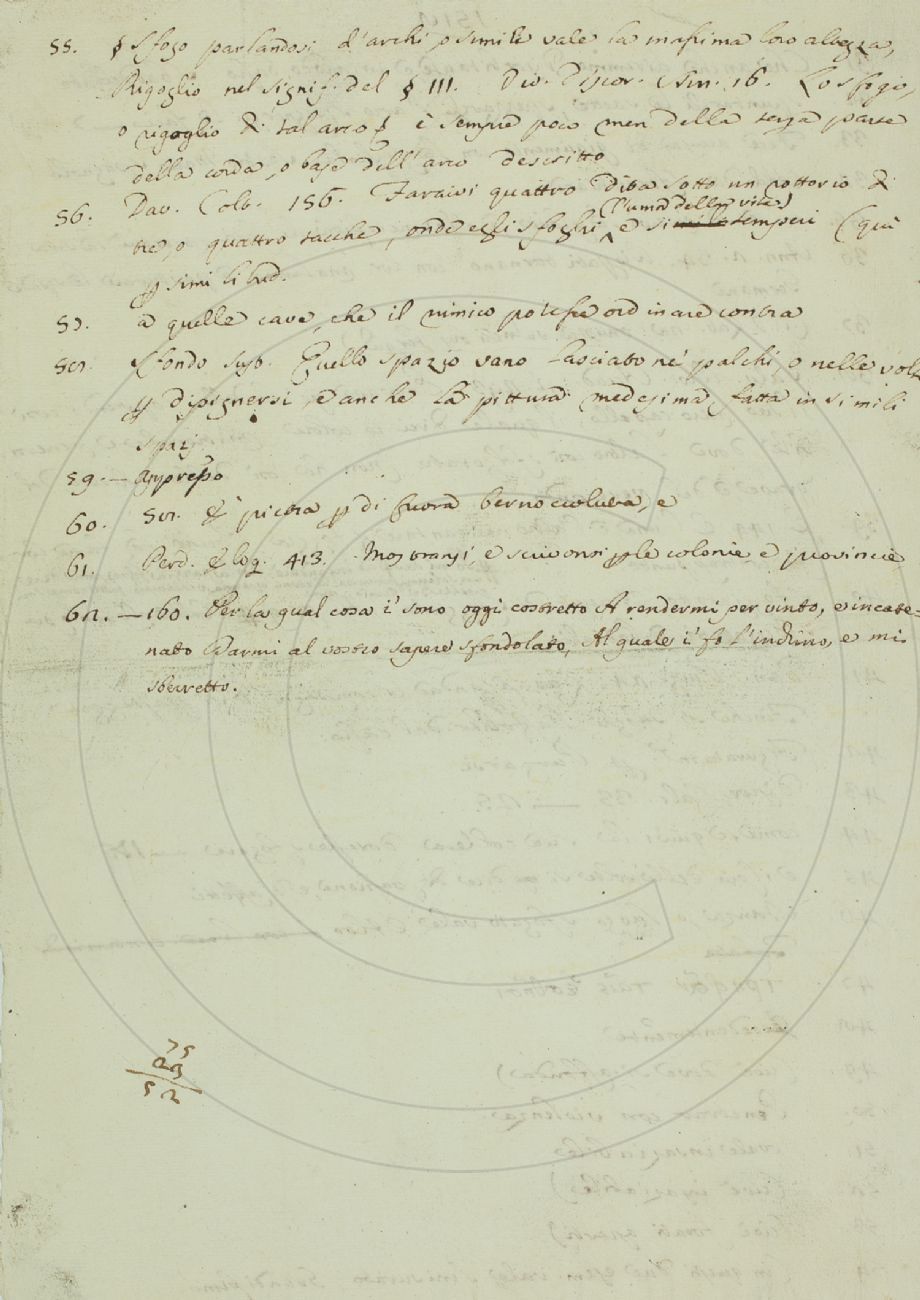 55. § Sfogo parlandosi d'archi, o simile vale la massima loro altezza,
Rigoglio nel signif. del § III. Viv. Discor. Arn. 16. Lo sfogo,
o rigoglio di tal arco è sempre poco men della terza parte
della corda, o base dell'arco descritto
56. Dav. Colt. 156. Faraivi quattro dita sotto un rottorio di
(l'umor della vite)
tre, o quattro tacche, onde egli sfoghi, e si stemperi (quì
per similitud.
57. a quelle cave, che il nimico potesse ordinare contra
58. Sfondo sust. Quello spazio vano lasciato ne' palchi, o nelle volte
per dipignersi, e anche la pittura medesima fatta in simili
spazj
59. — appresso
60. Ser. è pietra per di fuora bernoccoluta, e
61. Perd. eloq. 413. Mostransi, e scuoronsi per le colonie e provincie
62. — 160. Per la qual cosa i' sono oggi costretto A rendermi per vinto, e incate-
nato Darmi al vostro sapere sfondolato, Al quale i' fo l'inchino, e mi
sberretto.
75
23
52